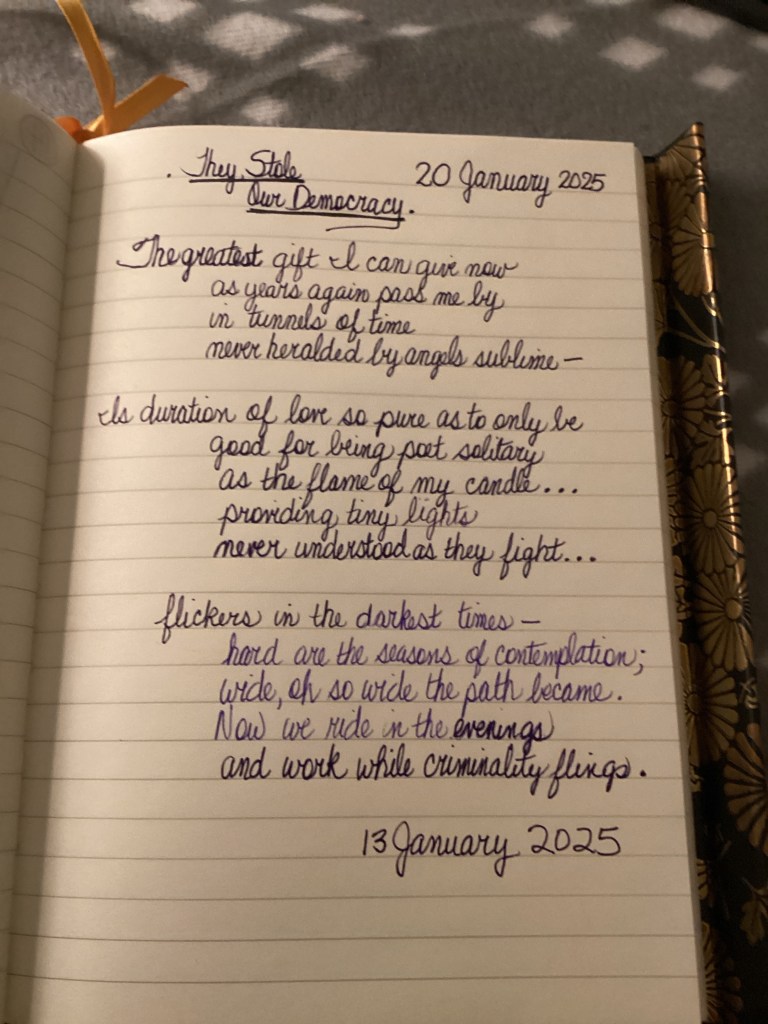 . They Stole 20 January 2025
Our Democracy.
The greatest gift I can give now
as years again pass me by
in tunnels of time
never heralded by angels sublime —
Is duration of love so pure as to only be
good for being poet solitary
as the flame of my candle...
providing tiny lights
never understood as they fight...
flickers in the darkest times —
hard are the seasons of contemplation;
wide, oh so wide the path became.
Now we ride in the evenings
and work while criminality flings.
13 January 2025